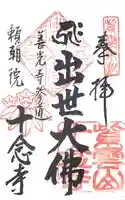 奉拝
出世大佛
善光寺
頼朝院
十念寺